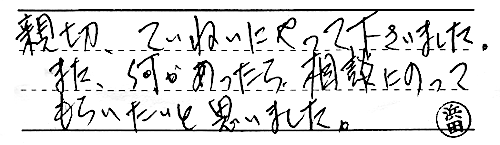 親切、ていねいにやって下さいました。
また、何かあったら、相談にのって
もらいたいと思いました。
浜田